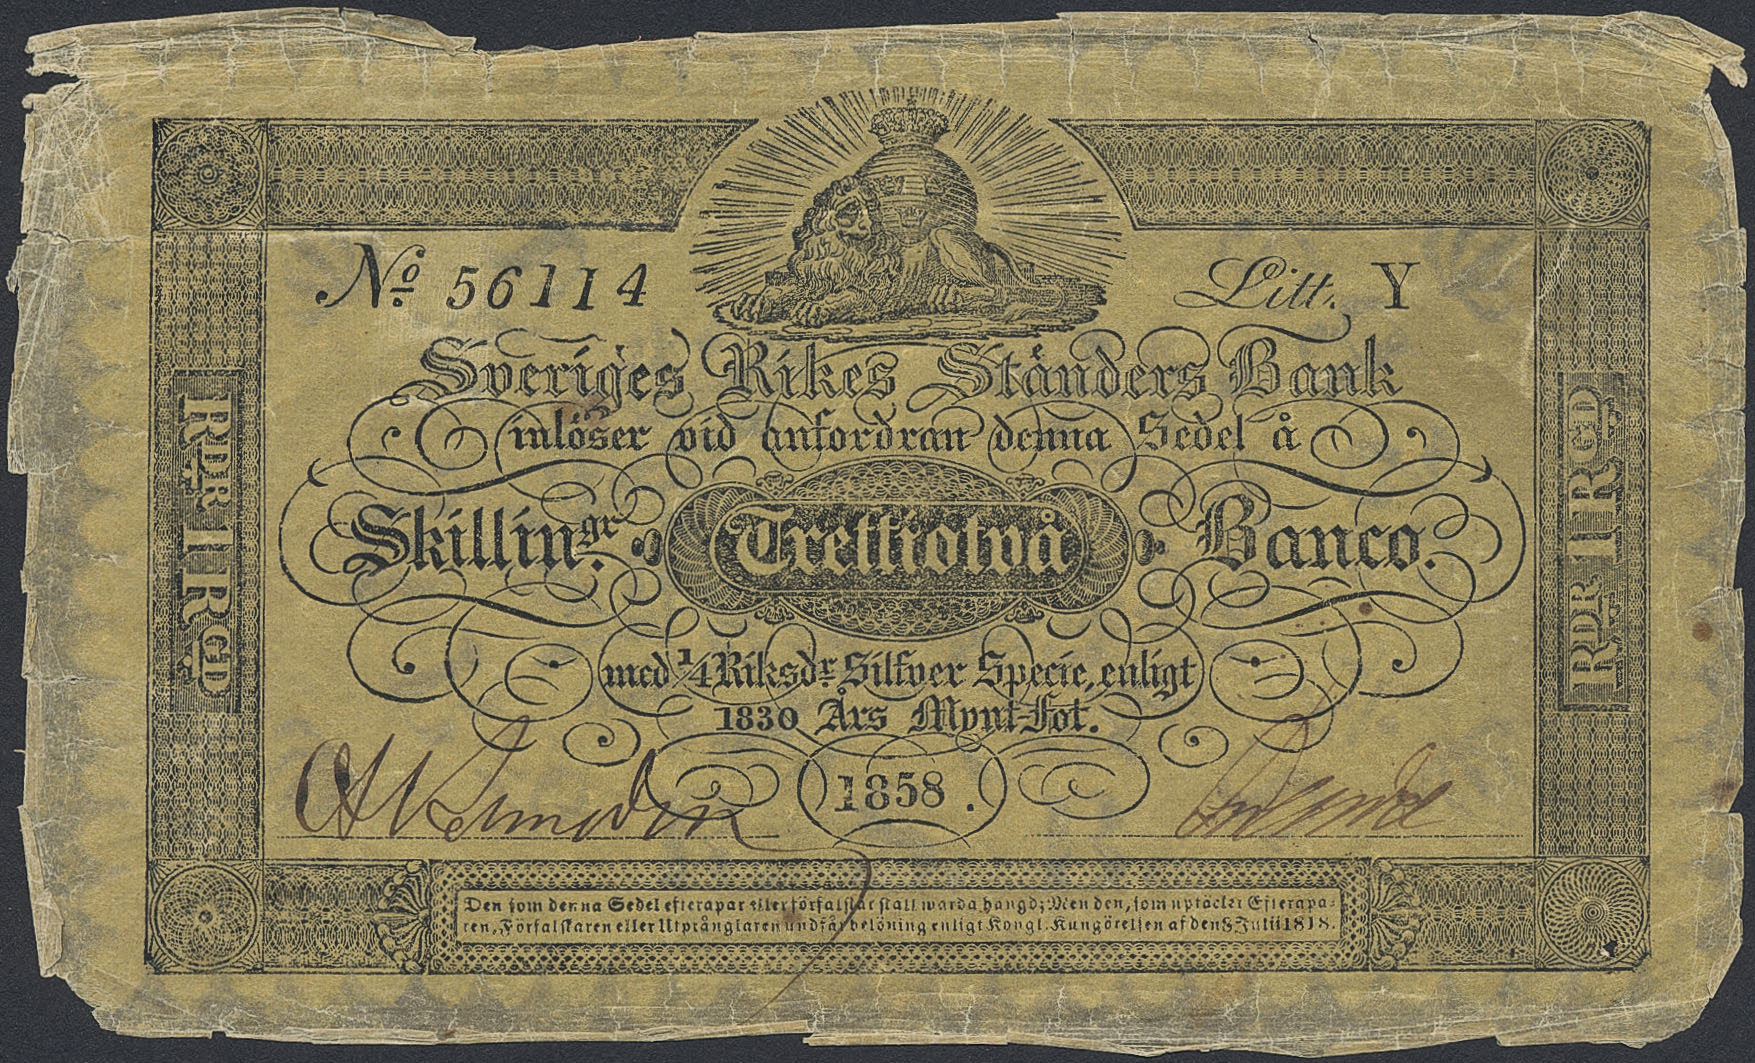 No. 56114
Litt. Y
Sveriges Rikes Ständers Bank
inlöser vid anfordran denna Sedel å
Skillingr. Trettiotvå Banco.
med 1/4 Riksdr Silfver Specie, enligt
1830 Års Mynt-Fot.
1858.
RDR 1 RGD
RDR 1 RGD
Den som denna Sedel efterapar eller förfalskar skall warda hängd; Men den, som uptäcker Efterapa-
ren, Förfalskaren eller Utprånglaren undfår belöning enligt Kongl. Kungörelsen af den 8 Julii 1818.